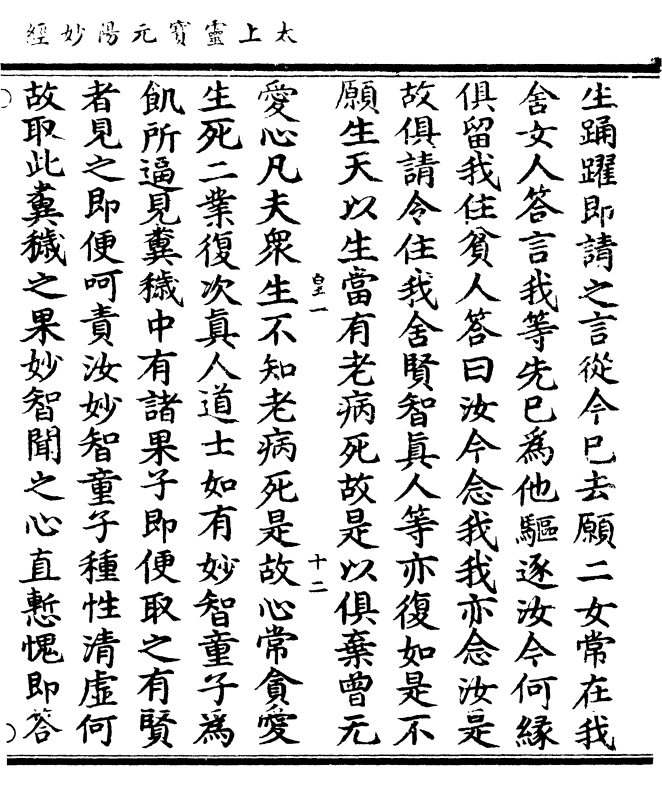 太上靈寶元陽妙經
生踊躍即請之言從今已去願二女常在我
舍女人答言我等先已爲他驅逐汝今何緣
俱留我住貧人答曰汝今念我我亦念汝是
故俱請令住我舍賢智眞人等亦復如是不
願生天以生當有老病死故是以俱棄曾无
皇一
十二
愛心凡夫衆生不知老病死是故心常貪愛
生死二業復次眞人道士如有妙智童子爲
飢所逼見糞穢中有諸果子即便取之有賢
者見之即便呵責汝妙智童子種性清虛何
故取此糞穢之果妙智聞之心直慙愧即答